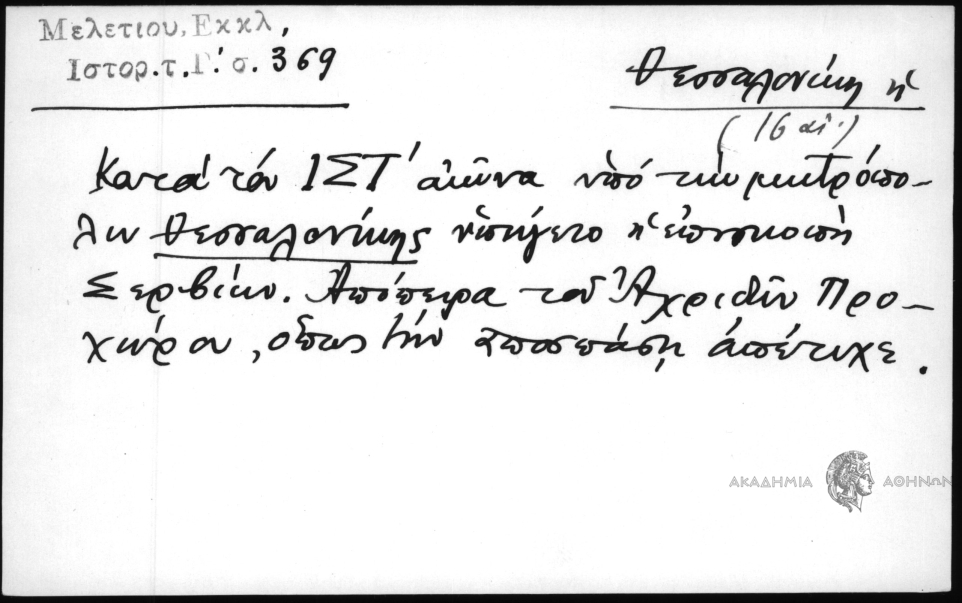 Μελετιου, Εκκλ,
Ιστορ. τ. Γ'. σ. 369
Θεσσαλονίκη ἡ
(16 αἰ.)
Κατά τόν ΙΣΤ' αἰῶνα ὑπό τήν μητρόπο-
λιν Θεσσαλονίκης ὑπήγετο ἡ ἐπισκοπή
Σερβίων. Ἀπόπειρα τοῦ Ἀχριδῶν Προ-
χώρου, ὅπως τήν ἀποσπάσῃ ἀπέτυχε.
ΑΚΑΔΗΜΙΑ ΑΘΗΝΩΝ